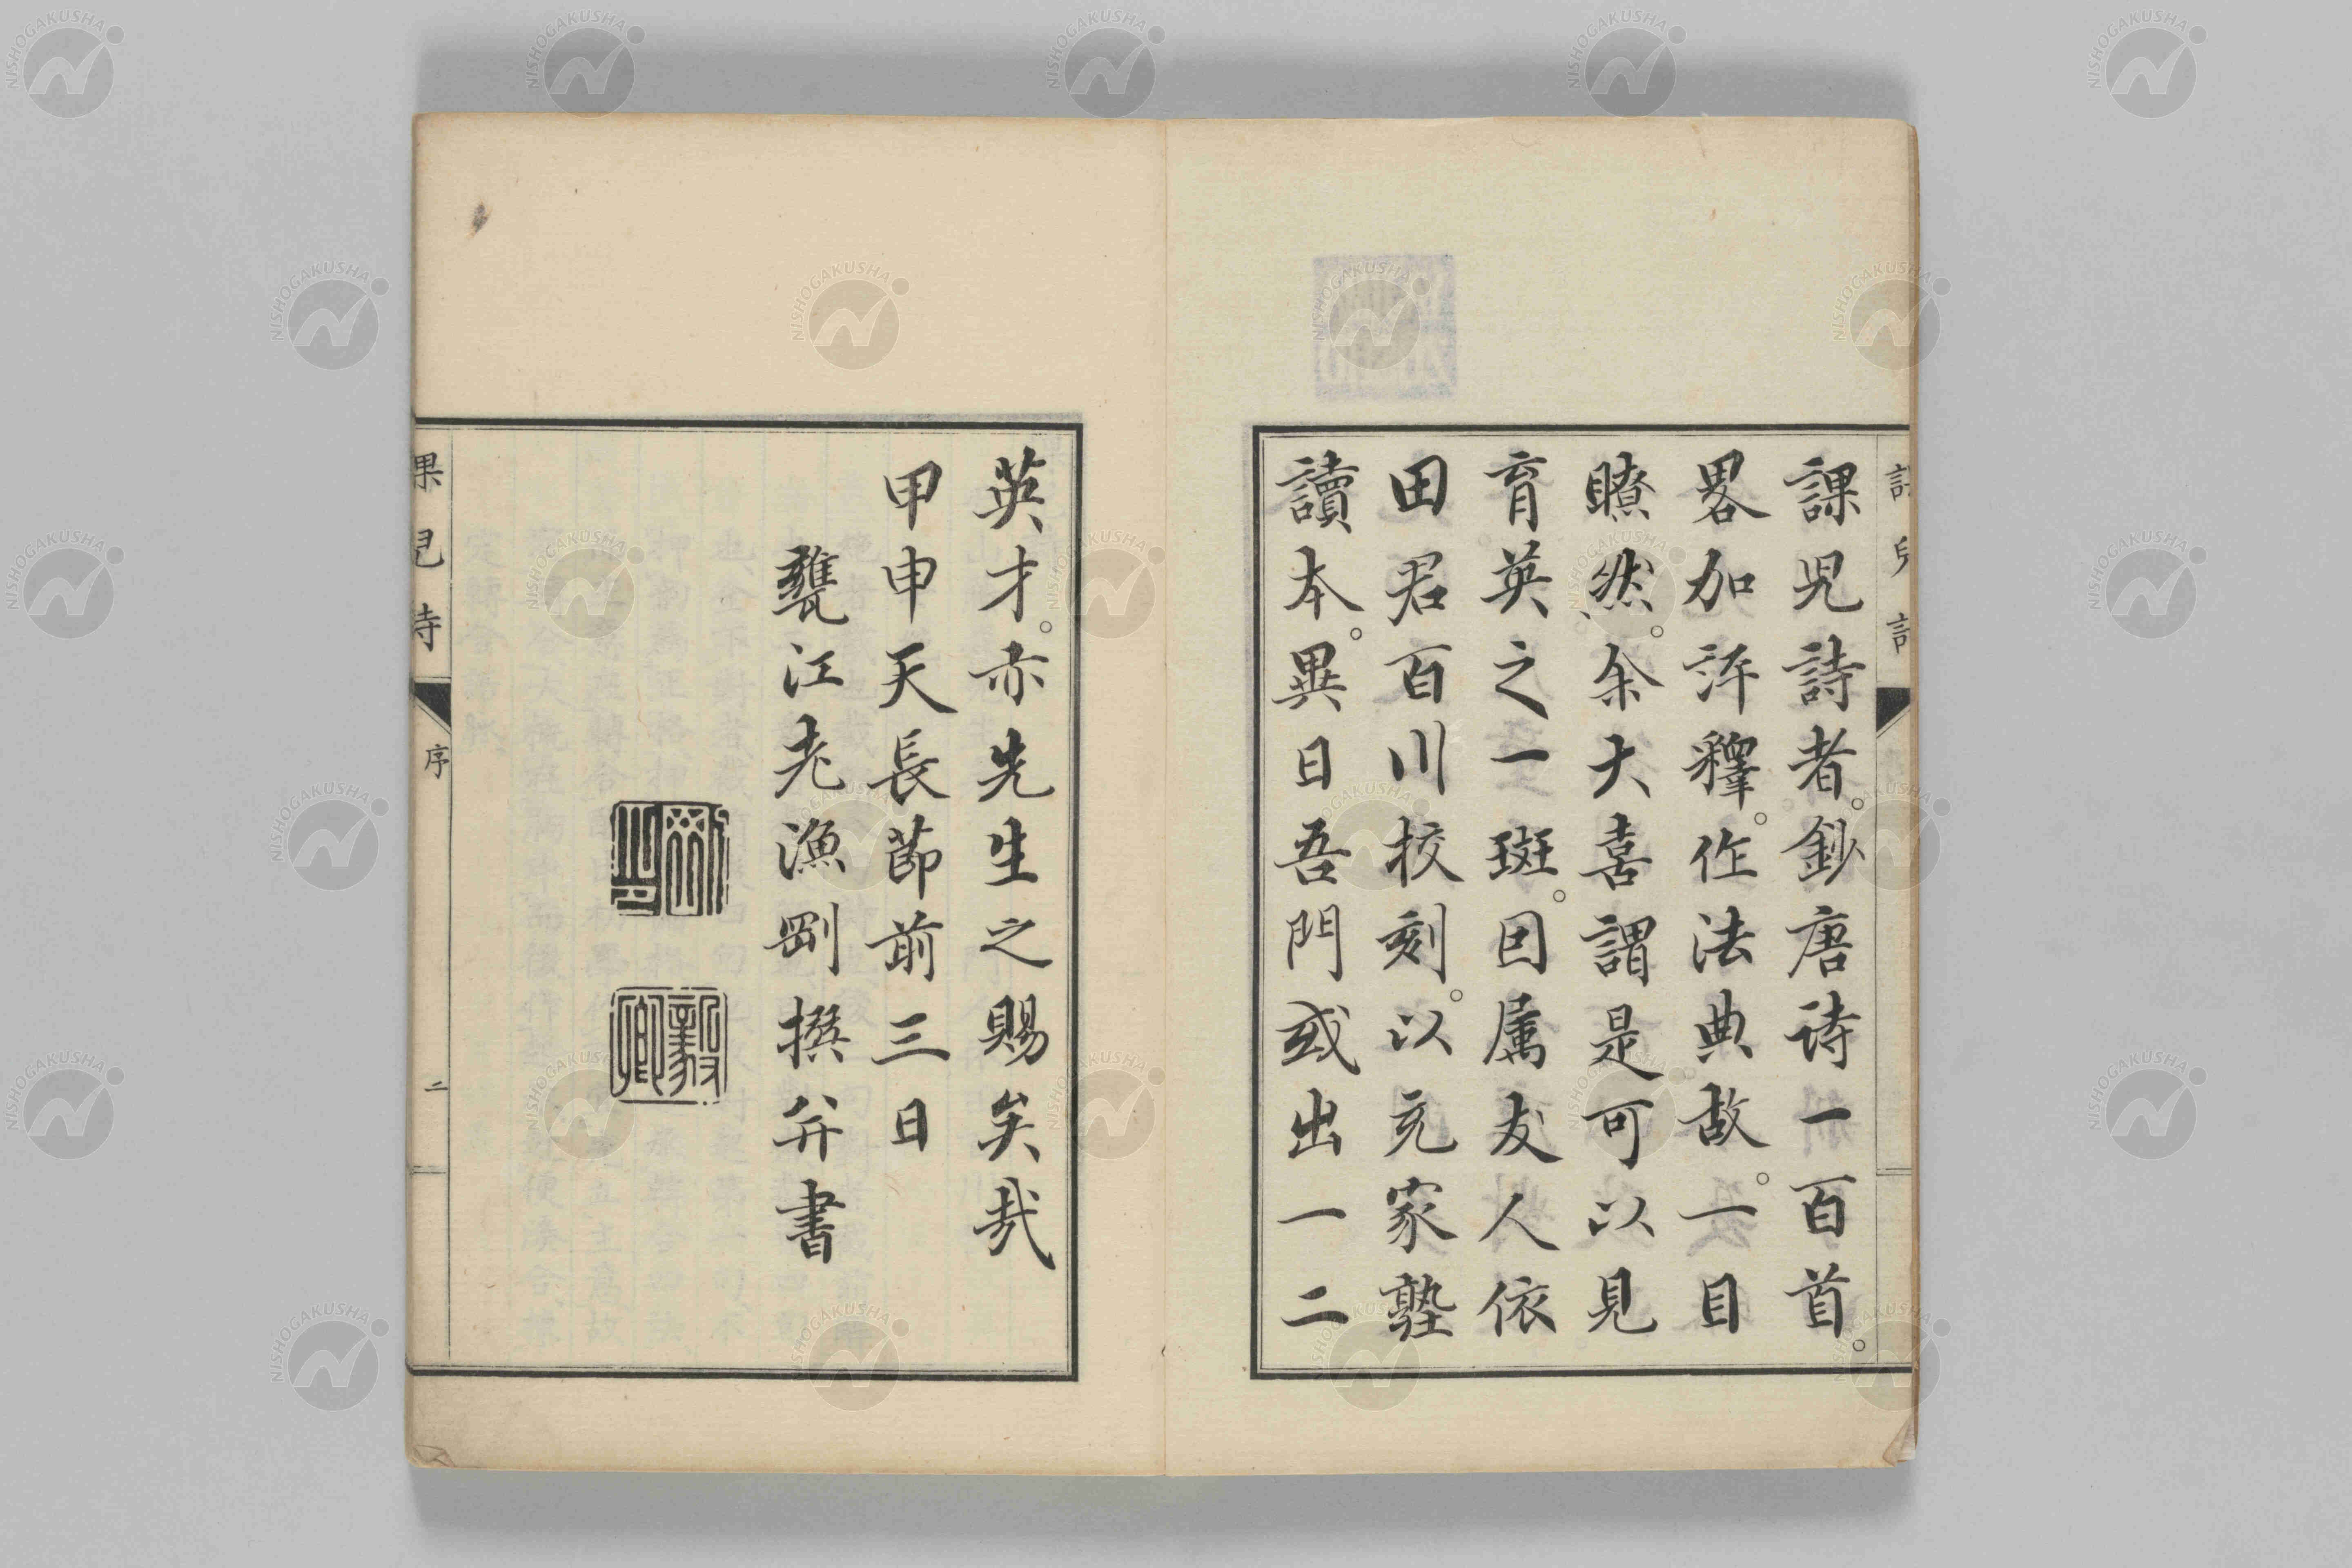 課兒詩者。鈔唐詩一百首。
畧加評釋。作法典故。一目
瞭然。余大喜謂是可以見
育英之一斑。因属友人依
田君百川校刻。以充家塾
讀本。異日吾門或出一二
英才。亦先生之賜矣哉
甲申天長節前三日
甕江老漁剛撰并書
毅卿
課兒詩
序
二
NISHOGAKUSHA